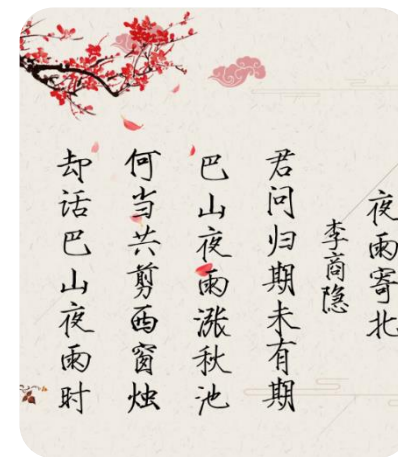 夜雨寄北
李商隐
君问归期未有期
巴山夜雨涨秋池
何当共剪西窗烛
却话巴山夜雨时